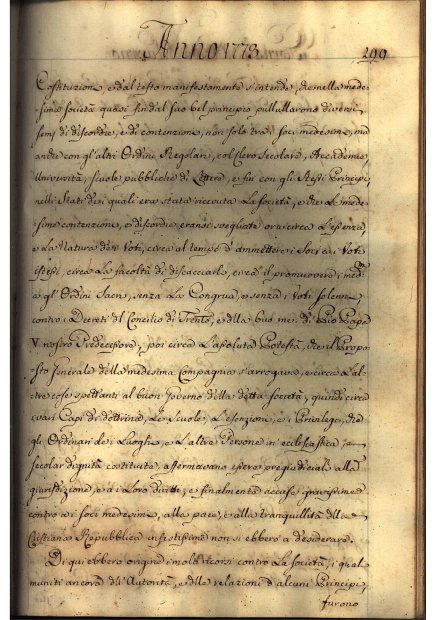 Anno 1773. 299
Costituzione, e dal testo manifestamente s'intende, che nella mede-
sima società quasi fin dal suo bel principio pullularono diversi
semi di discordie, e di contenzione, non solo tra i soci medesimi, ma
anche con gl'altri Ordini Regolari, col Clero Secolare, Accademie,
Università, scuole pubbliche di Lettere, e fin con gli stessi Principi,
nelli Stati de i quali era stata ricevuta La Società, e che Le mede-
sime contenzione, e discordie eransi svegliate ora circa L'essenza,
e La Natura de i Voti, circa al tempo d'ammettere i Soci a i Voti
stessi, circa La facoltà di discacciarlo, circa il promuovere i medmi
a gl'Ordini Sacri, senza La Congrua, o senza i Voti solenni
contro i Decreti del Concilio di Trento, e della buo: me: di Pio Papa
V nostro Predecessore, poi circa L'assoluta Potestà, che il Propo-
sto Generale della medesima Compagnia s'arrogava, e circa L'al-
tre cose spettanti al buon Governo della detta società, quindi circa
vari Capi di dottrina, Le Scuole, L'esenzioni, e i Privilegi, che
gl'Ordinari de i Luoghi, e L'altre Persone in ecclesiastica, e
secolar dignità costituite, affermavano essere pregiudiciali alla
giurisdizione, e a i Loro diritti; e finalmente accuse gravissime
contro a i soci medesimi, alla pace, e alla tranquillità della
Cristiana Repubblica infestissime non si ebbero a desiderare.
Di qui ebbero origine molti ricorsi contro La Società, i quali
muniti ancora dell'Autorità, e delle relazioni d'alcuni Principi,
furono